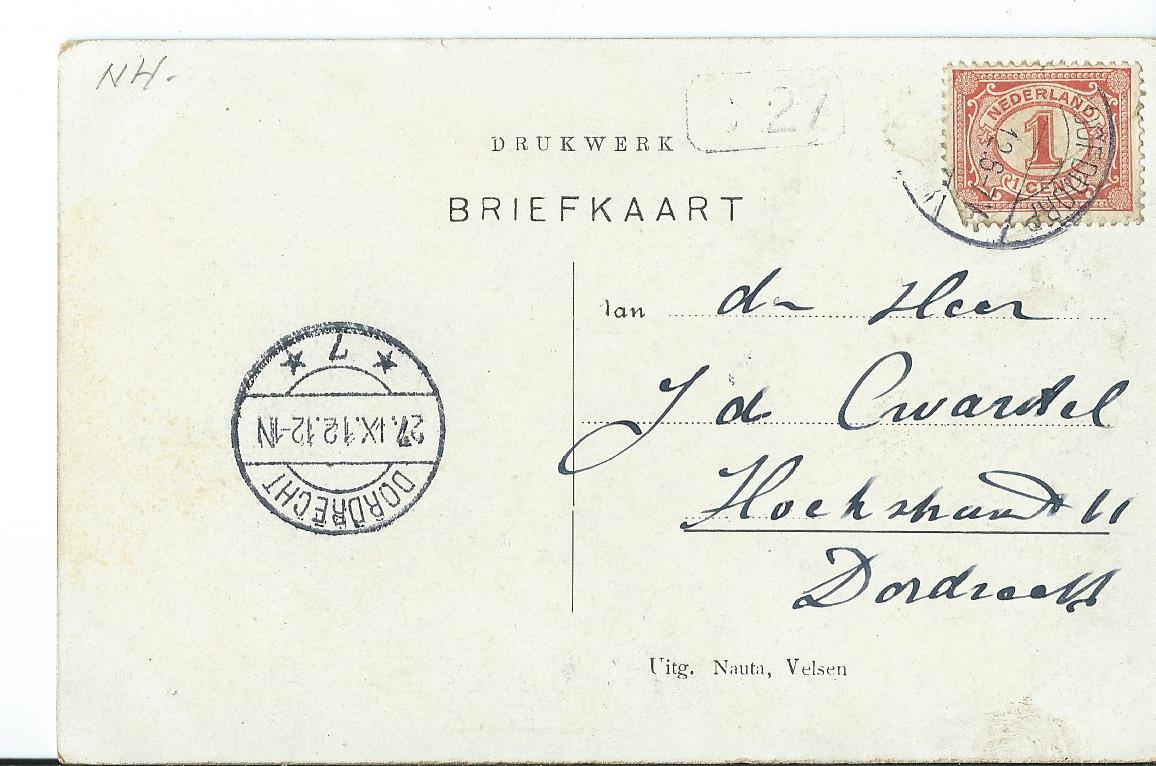 NH.
27
DRUKWERK
BRIEFKAART
NEDERLAND
1
1 CENT
12
Aan den Heer
J d Cwartel
Dordrecht
7
27.IX.12.12-1N
DORDRECHT
Uitg. Nauta, Velsen